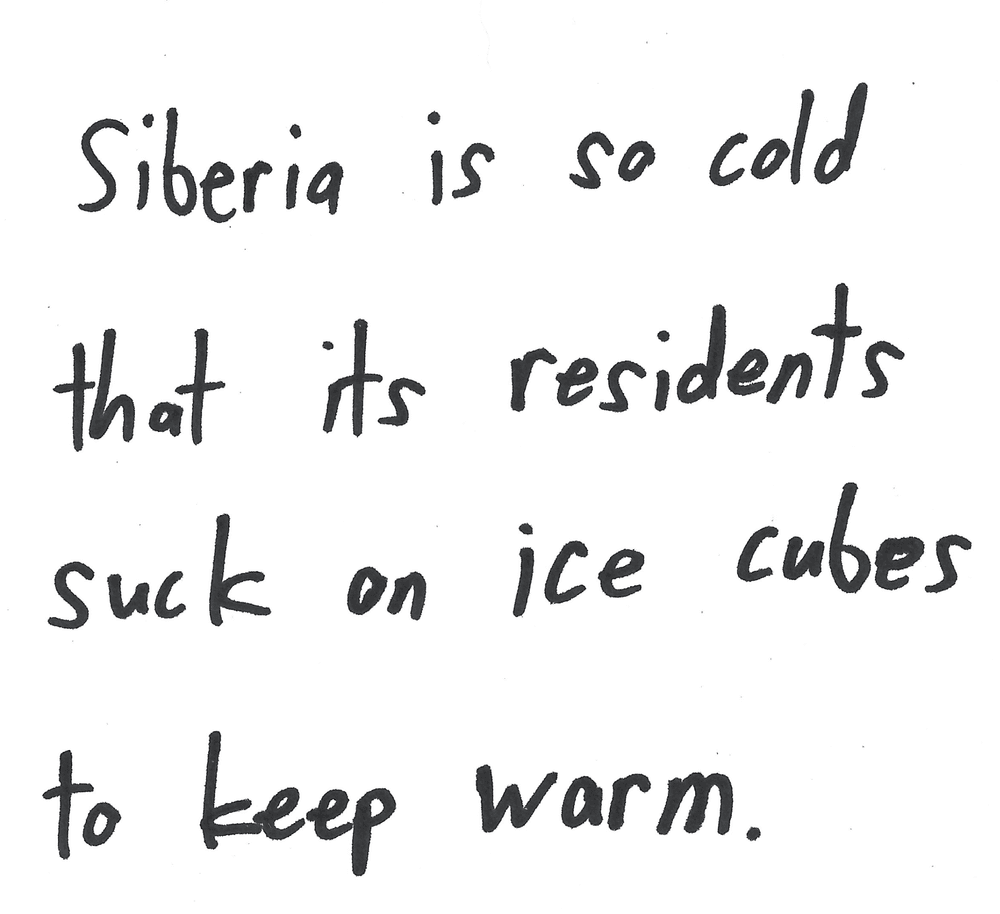 Siberia is so cold
that its residents
suck on ice cubes
to keep warm.